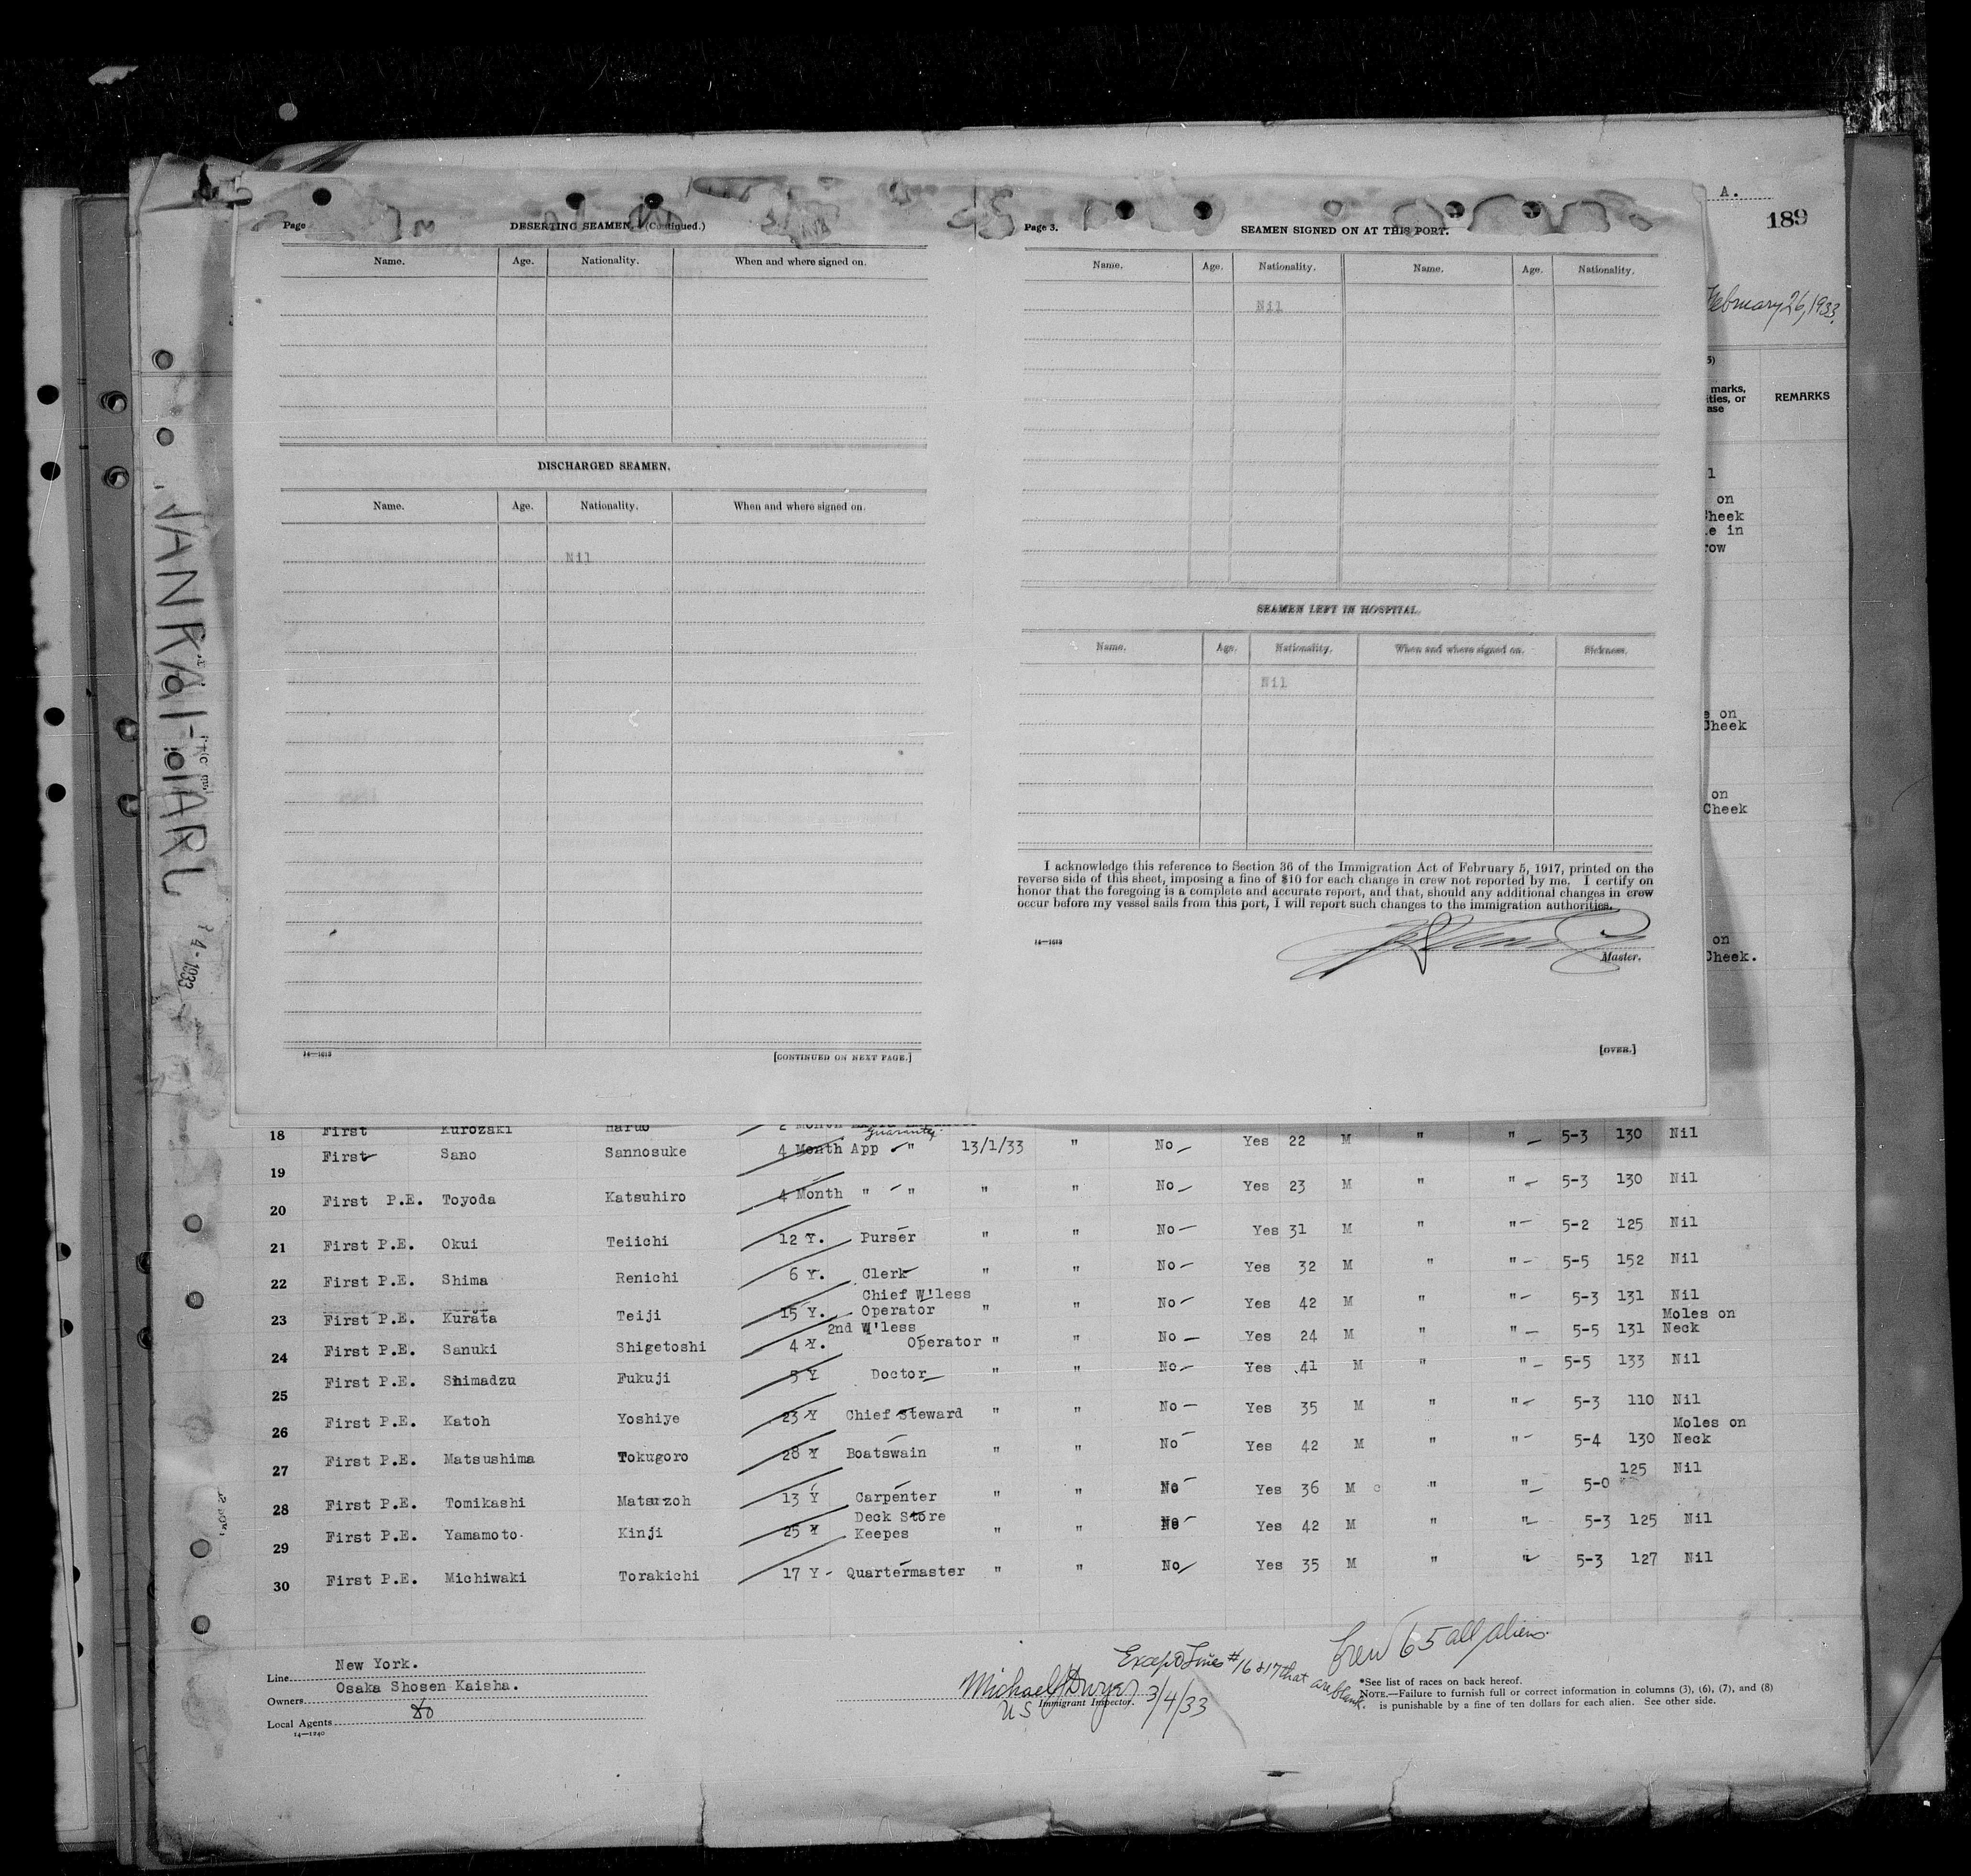 A.
189
February 26, 1933.
marks,
REMARKS
on
Cheek
on
Cheek
on
Cheek
on
Cheek.
Page
DESERTING SEAMEN. (Continued.)
Name. Age. Nationality. When and where signed on.
DISCHARGED SEAMEN.
Name. Age. Nationality. When and where signed on.
Nil
14—1613
[CONTINUED ON NEXT PAGE.]
Page 3.
SEAMEN SIGNED ON AT THIS PORT.
Name. Age. Nationality. Name. Age. Nationality.
Nil
SEAMEN LEFT IN HOSPITAL
Name. Age. Nationality. When and where signed on. Sickness.
Nil
I acknowledge this reference to Section 36 of the Immigration Act of February 5, 1917, printed on the
reverse side of this sheet, imposing a fine of $10 for each change in crew not reported by me. I certify on
honor that the foregoing is a complete and accurate report, and that, should any additional changes in crew
occur before my vessel sails from this port, I will report such changes to the immigration authorities.
14—1613
Master.
[OVER.]
18 First Kurozaki Haruo 2 Month
First Sano Sannosuke 4 Month App " 13/1/33 " No Yes 22 M " " 5-3 130 Nil
19
First P.E. Toyoda Katsuhiro 4 Month " " " " No Yes 23 M " " 5-3 130 Nil
20
First P.E. Okui Teiichi 12 Y. Purser " " No Yes 31 M " " 5-2 125 Nil
21
First P.E. Shima Renichi 6 Y. Clerk " " No Yes 32 M " " 5-5 152 Nil
22
Chief W'less
First P.E. Kurata Teiji 15 Y. Operator " " No Yes 42 M " " 5-3 131 Nil
23
2nd W'less Moles on
First P.E. Sanuki Shigetoshi 4 Y. Operator " " No Yes 24 M " " 5-5 131 Neck
24
First P.E. Shimadzu Fukuji 5 Y Doctor " " No Yes 41 M " " 5-5 133 Nil
25
First P.E. Katoh Yoshiye 23 Y Chief Steward " " No Yes 35 M " " 5-3 110 Nil
26
Moles on
First P.E. Matsushima Tokugoro 28 Y Boatswain " " No Yes 42 M " " 5-4 130 Neck
27
First P.E. Tomikashi Matsuzoh 13 Y Carpenter " " No Yes 36 M " " 5-0 125 Nil
28
Deck Store
First P.E. Yamamoto Kinji 25 Y Keepes " " No Yes 42 M " " 5-3 125 Nil
29
First P.E. Michiwaki Torakichi 17 Y Quartermaster " " No Yes 35 M " " 5-3 127 Nil
30
Line New York.
Owners Osaka Shosen Kaisha.
Local Agents
14—1240
Crew 65 all aliens.
Except Lines # 16 & 17 that are blank.
Michael J Dwyer 3/4/33
US Immigrant Inspector.
*See list of races on back hereof.
NOTE.—Failure to furnish full or correct information in columns (3), (6), (7), and (8)
is punishable by a fine of ten dollars for each alien. See other side.